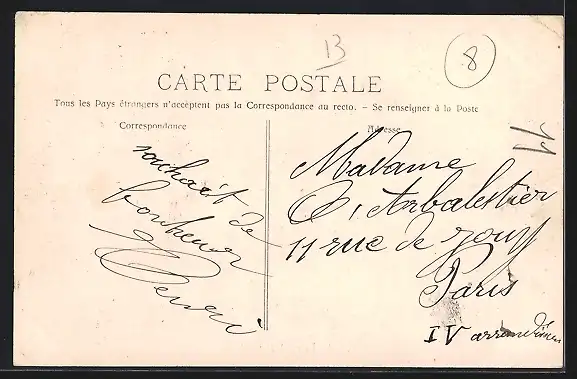 13
8
CARTE POSTALE
Tous les Pays étrangers n'acceptent pas la Correspondance au recto. - Se renseigner à la Poste
Correspondance
Adresse
souhait de
bonheur
Henri
11
Madame
Arbalestier
11 rue de Jouy
Paris
IV